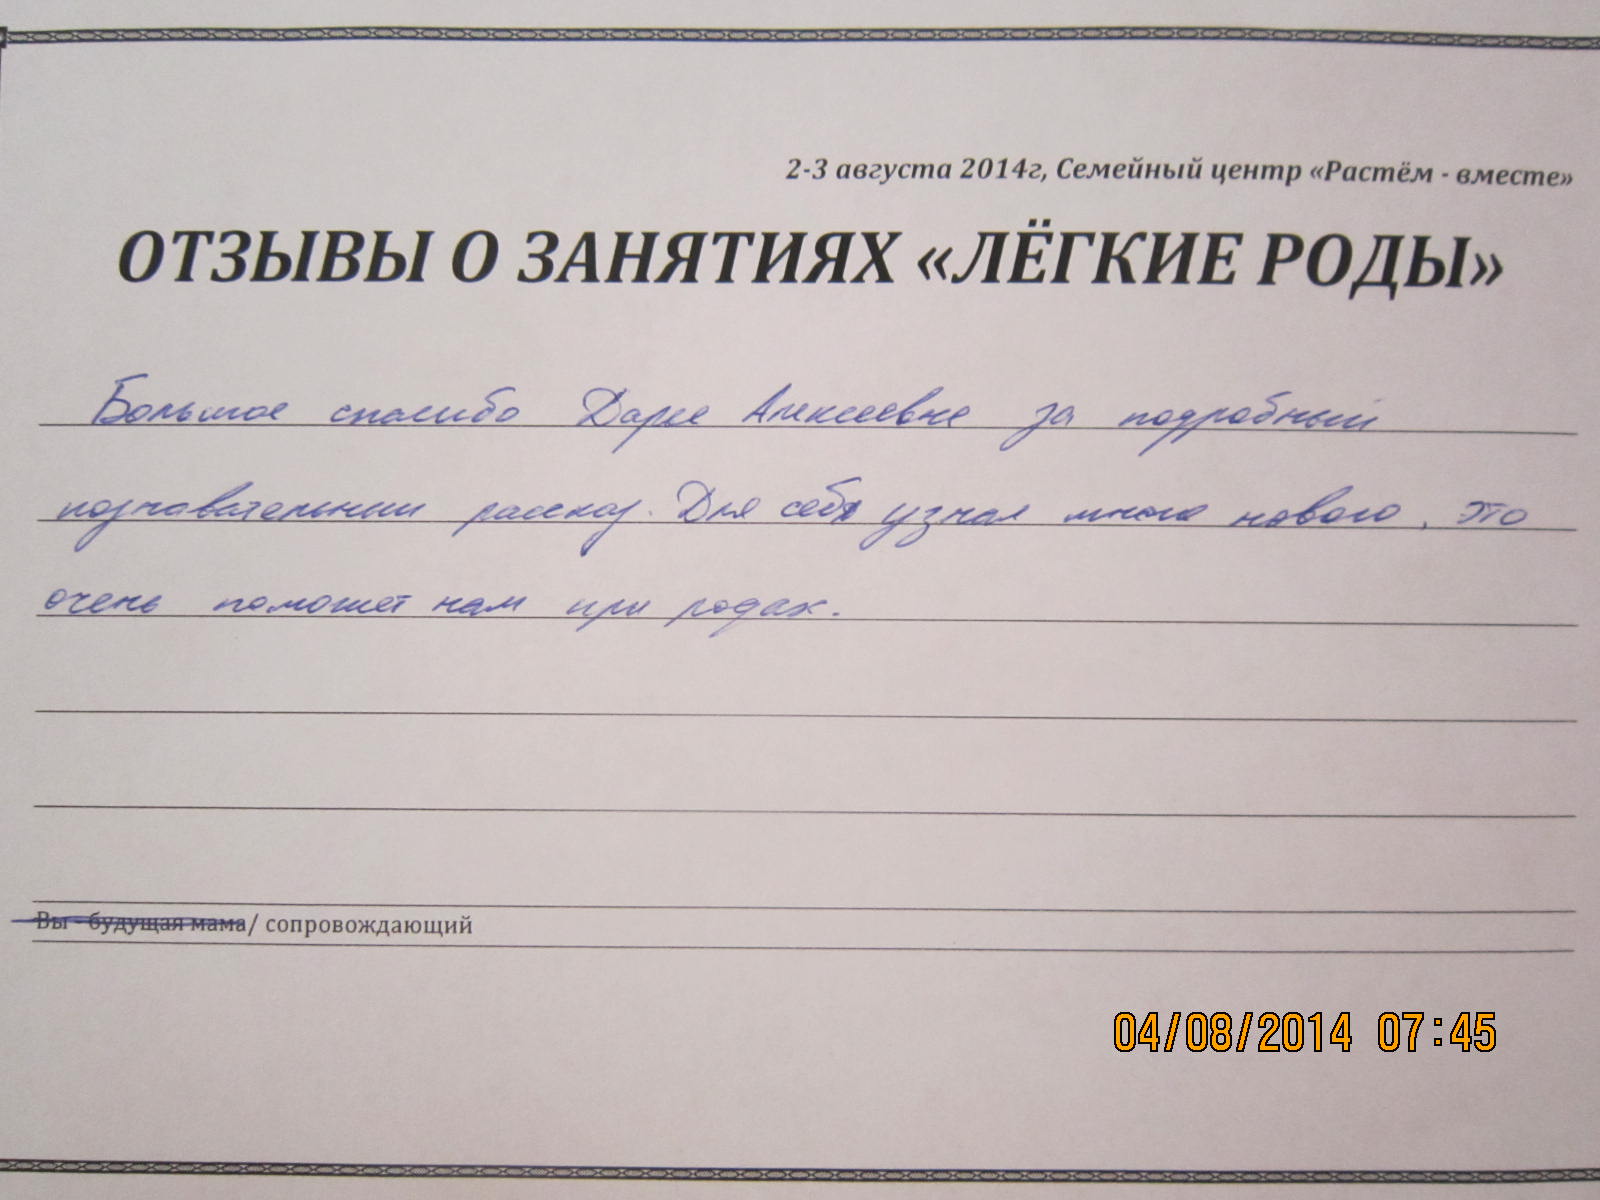 2-3 августа 2014г, Семейный центр «Растём - вместе»
ОТЗЫВЫ О ЗАНЯТИЯХ «ЛЁГКИЕ РОДЫ»
Большое спасибо Дарье Алексеевне за подробный
познавательный рассказ. Для себя узнал много нового, это
очень поможет нам при родах.
Вы - будущая мама/ сопровождающий
04/08/2014 07:45